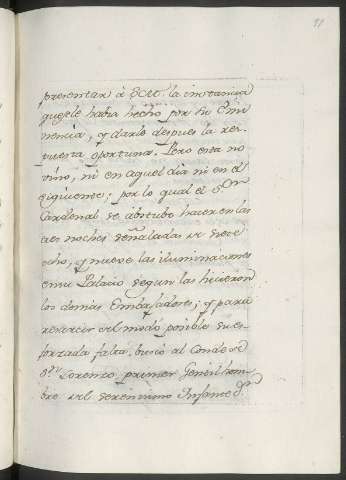 presentar à SM. la instancia
que se le habia hecho por su Emi
nencia, y darle despues la res-
puesta oportuna. Pero esta no
vino, ni en aquel dia ni en el
siguiente; por lo qual el S.or
Cardenal se abstubo hacer en las
tres noches señaladas de siete
ocho, y nueve las iluminaciones
en su Palacio segun las hicieron
los demas Embajadores; y para
resarcir del modo posible su es-
forzada falta, buscó al Conde de
S.n Lorenzo primer Gentilhom-
bre del serenisimo Infante D.n